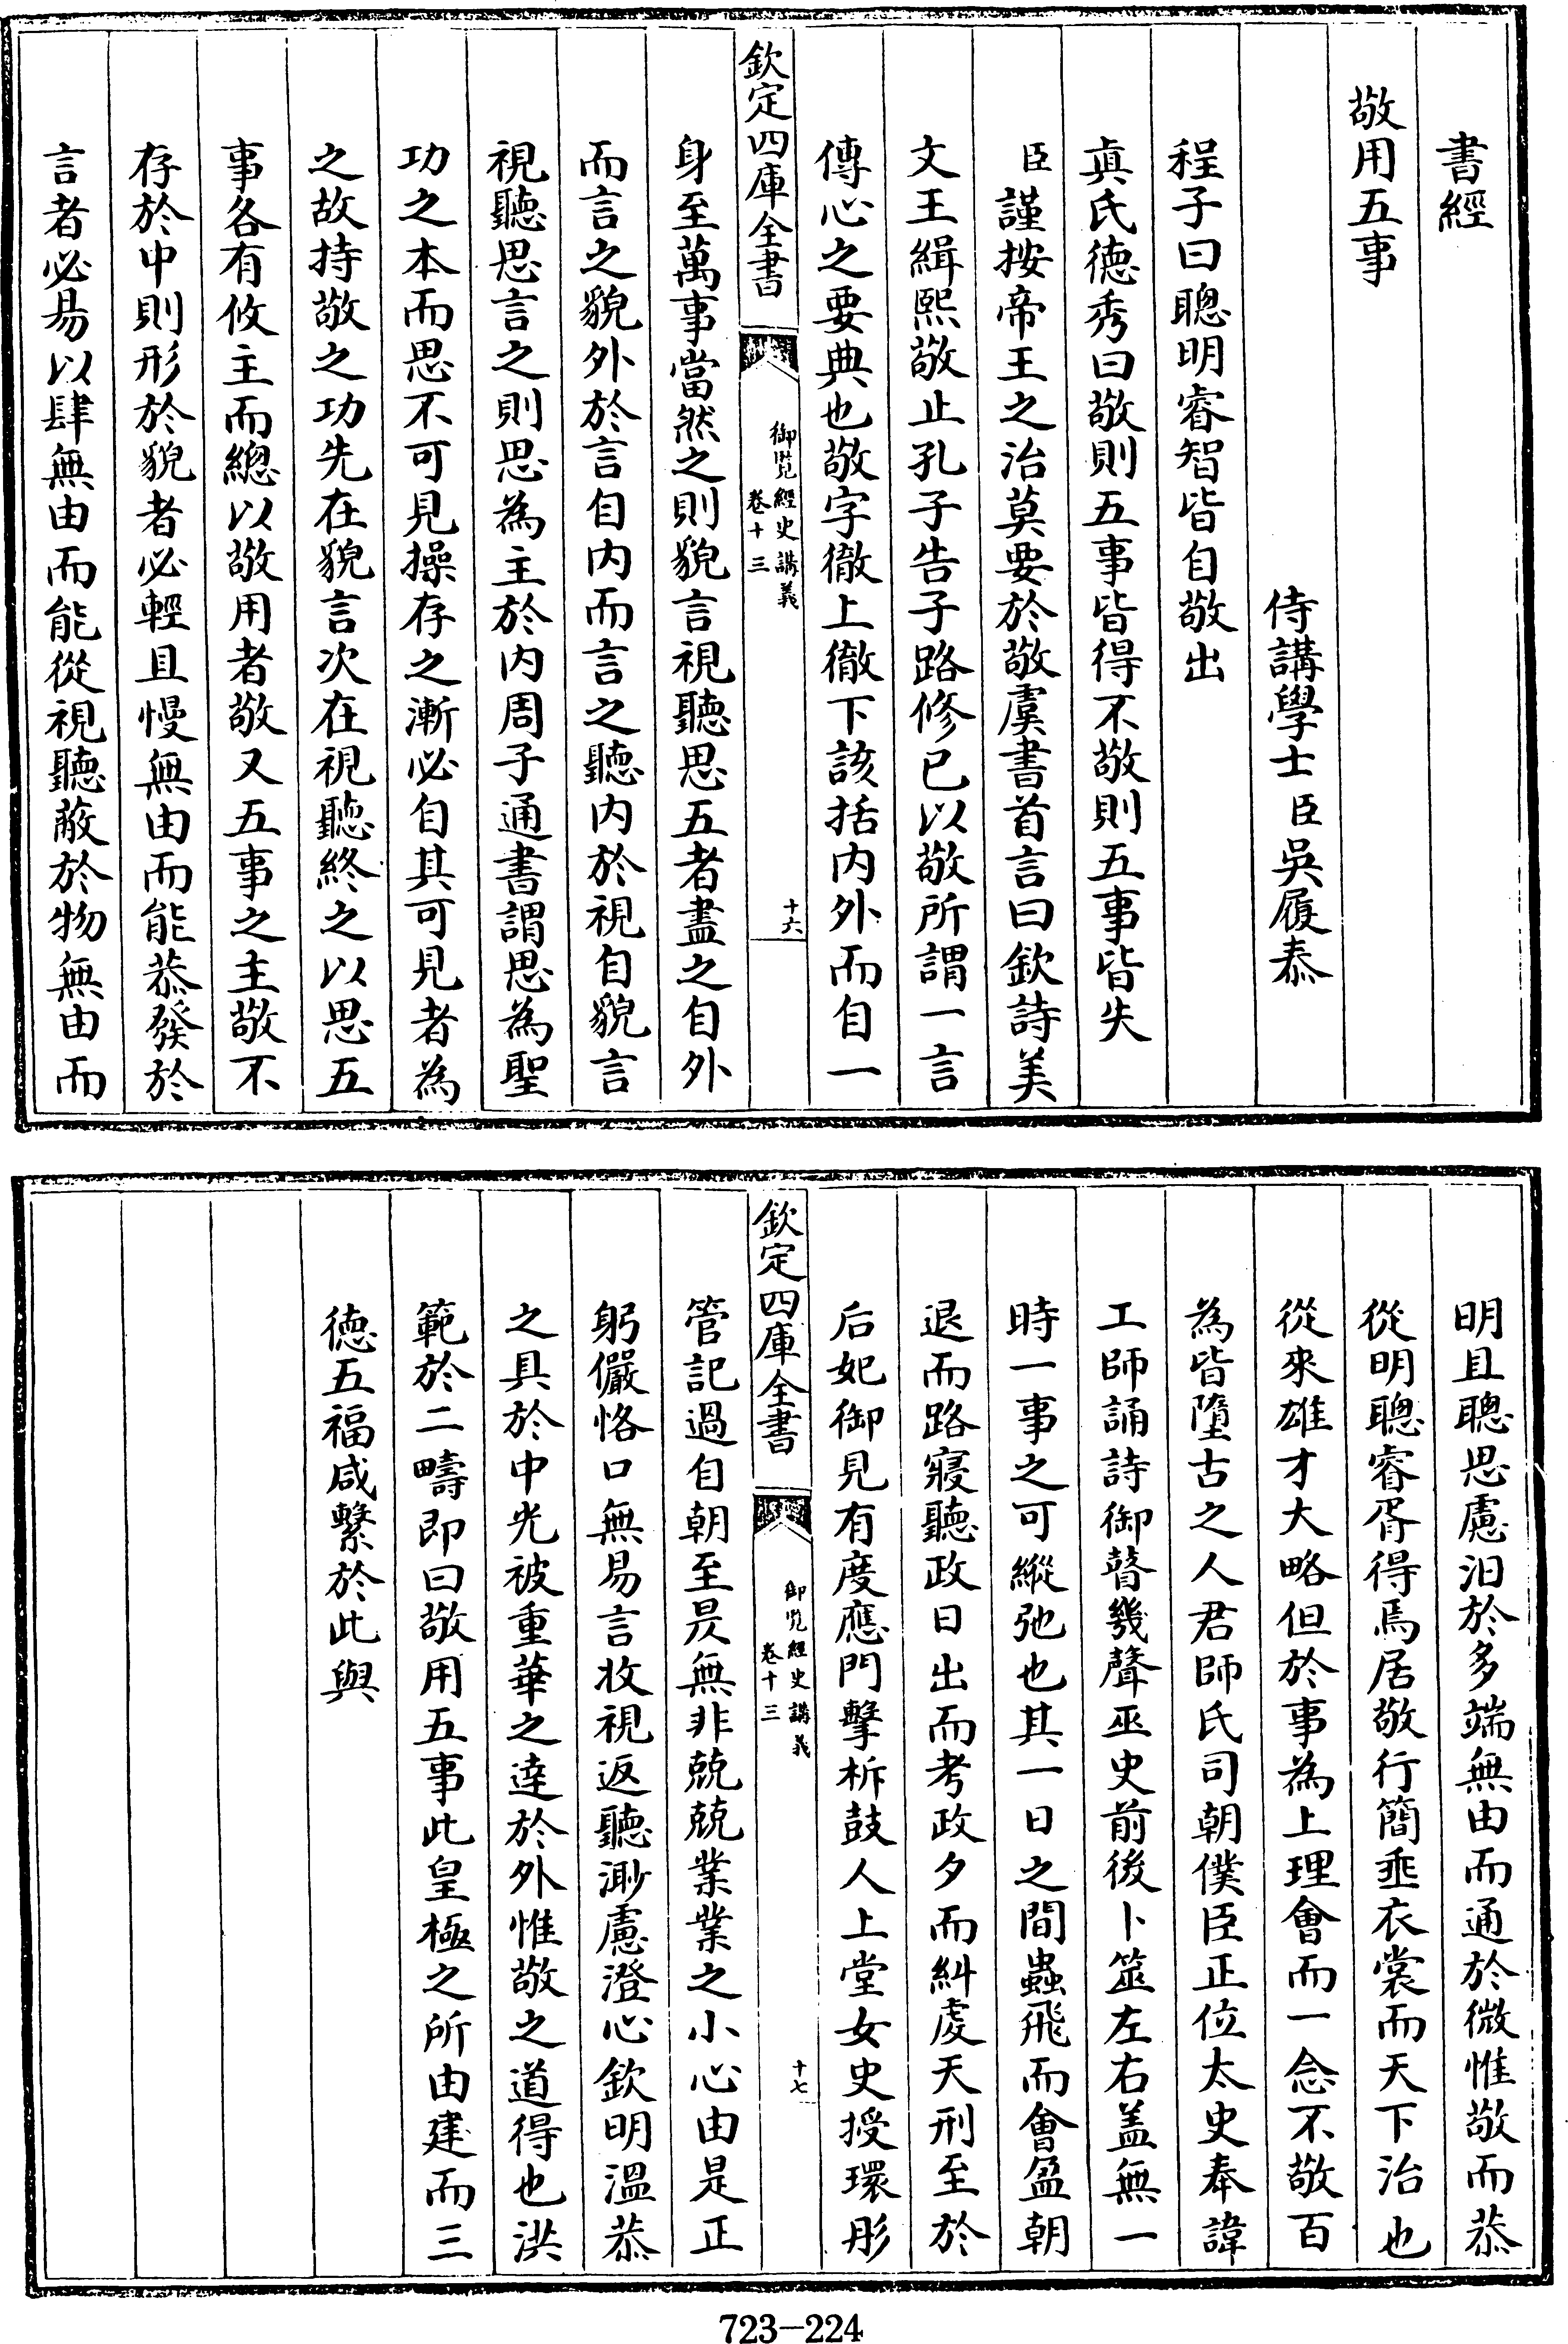 書經
敬用五事
侍講學士臣吳履泰
程子曰聰明睿智皆自敬出
真氏德秀曰敬則五事皆得不敬則五事皆失
臣謹按帝王之治莫要於敬虞書首言曰欽詩美
文王緝熙敬止孔子告子路修已以敬所謂一言
傳心之要典也敬字徹上徹下該括内外而自一
欽定四庫全書
御覽經史講義
卷十三
十六
身至萬事當然之則貌言視聽思五者盡之自外
而言之貌外於言自内而言之聽内於視自貌言
視聽思言之則思為主於内周子通書謂思為聖
功之本而思不可見操存之漸必自其可見者為
之故持敬之功先在貌言次在視聽終之以思五
事各有攸主而總以敬用者敬又五事之主敬不
存於中則形於貌者必輕且慢無由而能恭發於
言者必易以肆無由而能從視聽蔽於物無由而
明且聰思慮汨於多端無由而通於微惟敬而恭
從明聰睿胥得焉居敬行簡垂衣裳而天下治也
從來雄才大略但於事為上理會而一念不敬百
為皆墮古之人君師氏司朝僕臣正位太史奉諱
工師誦詩御瞽幾聲巫史前後卜筮左右盖無一
時一事之可縱弛也其一日之間蟲飛而會盈朝
退而路寢聽政日出而考政夕而糾虔天刑至於
后妃御見有度應門擊柝鼓人上堂女史授環彤
欽定四庫全書
御覽經史講義
卷十三
十七
管記過自朝至昃無非兢兢業業之小心由是正
躬儼恪口無易言收視返聽渺慮澄心欽明溫恭
之具於中光被重華之達於外惟敬之道得也洪
範於二疇即曰敬用五事此皇極之所由建而三
德五福咸繫於此與
723-224